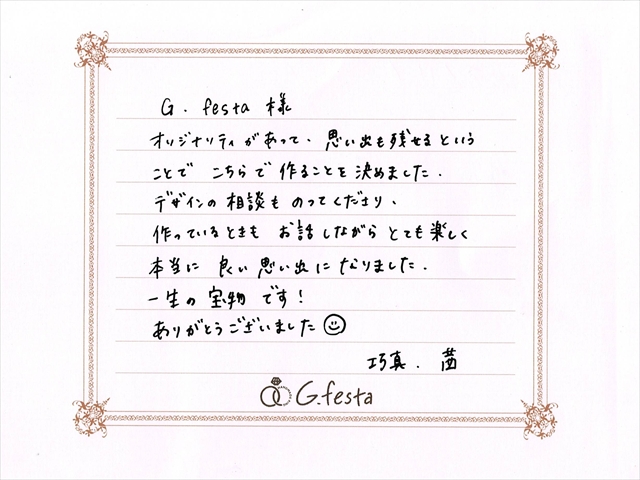 G. festa 様
オリジナリティがあって、思い出も残せるという
ことで こちらで 作ることを 決めました.
デザインの 相談も のってくださり、
作っているときも お話しながら とても楽しく
本当に 良い 思い出に なりました.
一生の 宝物 です!
ありがとうございました☺
巧真. 茜
G.festa